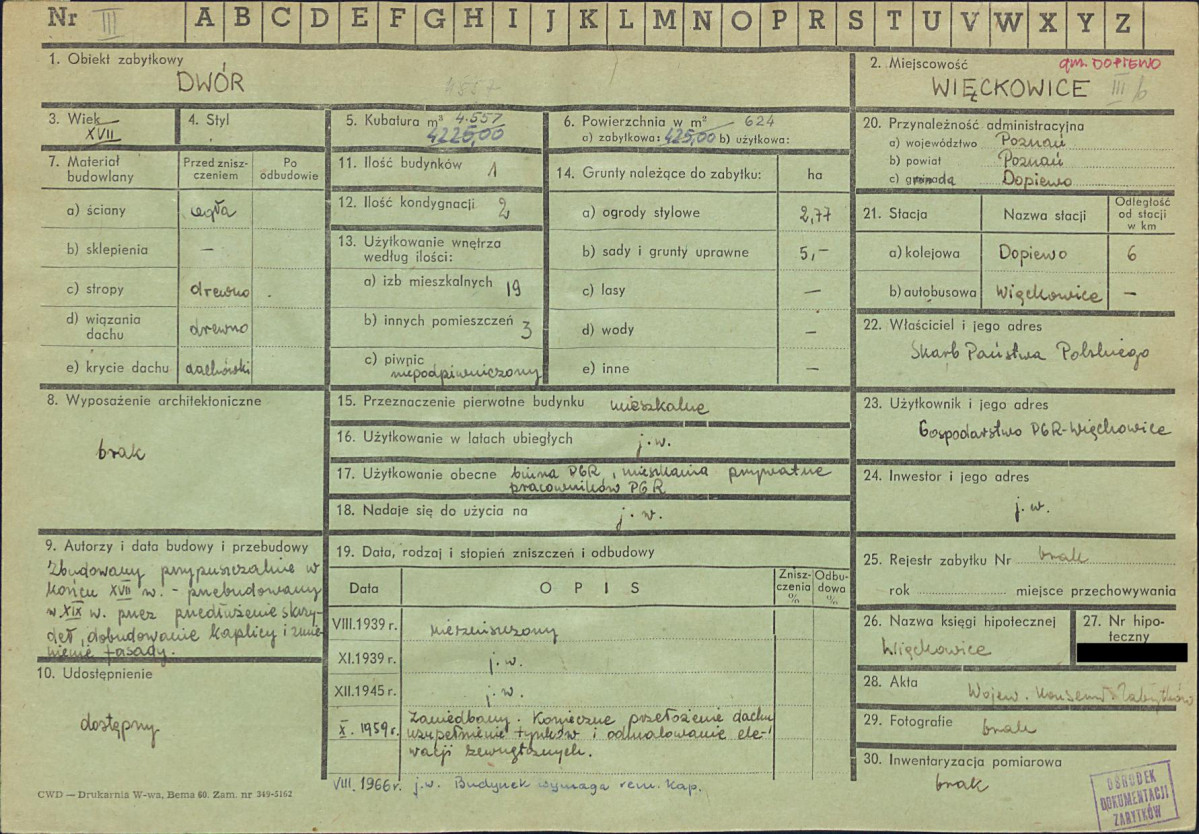 Nr III A B C D E F G H I J K L M N O P R S T U V W X Y Z
1. Obiekt zabytkowy
DWÓR
4557
2. Miejscowość
gm. DOPIEWO
WIĘCKOWICE III b
3. Wiek
XVII
4. Styl
5. Kubatura m³ 4.557
4225,00
6. Powierzchnia w m² 624
a) zabytkowa: 425,00 b) użytkowa:
7. Materiał budowlany
Przed zniszczeniem
Po odbudowie
a) ściany cegła
b) sklepienia —
c) stropy drewno
d) wiązania dachu drewno
e) krycie dachu dachówki
8. Wyposażenie architektoniczne
brak
9. Autorzy i data budowy i przebudowy
Zbudowany przypuszczalnie w
końcu XVII w. - przebudowany
w XIX w. przez przedłużenie skrzy-
deł, dobudowanie kaplicy i zmie-
nienie fasady.
10. Udostępnienie
dostępny
11. Ilość budynków 1
12. Ilość kondygnacji 2
13. Użytkowanie wnętrza
według ilości:
a) izb mieszkalnych 19
b) innych pomieszczeń 3
c) piwnic
niepodpiwniczony
14. Grunty należące do zabytku: ha
a) ogrody stylowe 2,77
b) sady i grunty uprawne 5,—
c) lasy —
d) wody —
e) inne —
15. Przeznaczenie pierwotne budynku mieszkalne
16. Użytkowanie w latach ubiegłych j.w.
17. Użytkowanie obecne biura PGR, mieszkania prywatne
pracowników PGR
18. Nadaje się do użycia na j.w.
19. Data, rodzaj i stopień zniszczeń i odbudowy
Data OPIS Zniszczenia % Odbudowa %
VIII.1939 r. niezniszczony
XI.1939 r. j.w.
XII.1945 r. j.w.
X. 1959 r. Zaniedbany. Konieczne przełożenie dachu
uzupełnienie tynków i odmalowanie ele-
wacji zewnętrznych.
VIII. 1966 r. j.w. Budynek wymaga rem. kap.
20. Przynależność administracyjna
a) województwo Poznań
b) powiat Poznań
c) gromada Dopiewo
21. Stacja
Nazwa stacji
Odległość od stacji w km
a) kolejowa Dopiewo 6
b) autobusowa Więckowice —
22. Właściciel i jego adres
Skarb Państwa Polskiego
23. Użytkownik i jego adres
Gospodarstwo PGR-Więckowice
24. Inwestor i jego adres
j.w.
25. Rejestr zabytku Nr brak
rok miejsce przechowywania
26. Nazwa księgi hipotecznej
Więckowice
27. Nr hipoteczny
28. Akta
Wojew. Konserw. Zabytków
29. Fotografie brak
30. Inwentaryzacja pomiarowa
brak
CWD — Drukarnia W-wa, Bema 60. Zam. nr 349-5162
OŚRODEK
DOKUMENTACJI
ZABYTKÓW